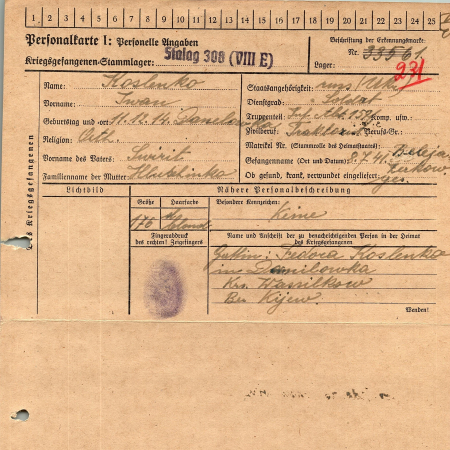 1 2 3 4 5 6 7 8 9 10 11 12 13 14 15 16 17 18 19 20 21 22 23 24 25
Personalkarte I: Personelle Angaben
Kriegsgefangenen-Stammlager: Stalag 308 (VIII E)
Beschriftung der Erkennungsmarke
Nr. 33561
Lager: 231
Des Kriegsgefangenen
Name: Koslenko
Vorname: Iwan
Geburtstag und -ort 11.12.14. Danilowka
Religion: Orth.
Vorname des Vaters: Swirit
Familienname der Mutter:
Staatsangehörigkeit: russ/Ukr.
Dienstgrad: Soldat
Truppenteil: Inf. Komp. usw.
Zivilberuf: Traktorist Berufs-Gr.
Matrikel Nr. (Stammrolle des Heimatstaates):
Gefangennahme (Ort und Datum): 7.41.
Ob gesund, krank, verwundet eingeliefert: ges.
Lichtbild
Nähere Personalbeschreibung
Größe
Haarfarbe
Besondere Kennzeichen:
176
blond
Keine
Fingerabdruck
des rechten! Zeigefingers
Name und Anschrift der zu benachrichtigenden Person in der Heimat
des Kriegsgefangenen
Gattin: Fedora Koslenko
in Danilowka
Krs. Wassilkow
Bez. Kijew.
Wenden!